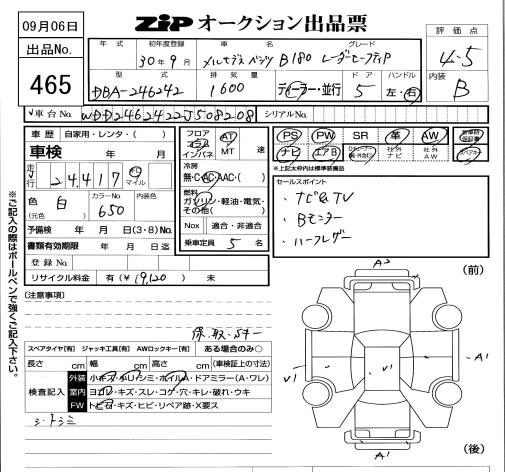 09月06日
出品No.
465
ZIP オークション出品票
年式 初年度登録 車名 グレード
30年9月 メルセデスベンツ B180 レーダーセーフティP
型式 排気量 ドア ハンドル
DBA-246242 1600 ディーラー・並行 5 左・右
評価点
4.5
内装
B
車台No. WDD2462422J508208 シリアルNo.
車歴 自家用・レンタ・( )
車検 年 月
走行 24,417 キロ マイル
色 白 (元色) カラーNo. 650 内装色
予備検 年 月 日(3・8)No.
書類有効期限 年 月 日迄
登録No.
リサイクル料金 有(¥19,120) 未
フロア コラム インパネ AT MT 速
冷房
無・C・AC・AAC・( )
燃料
ガソリン・軽油・電気・その他( )
Nox 適合・非適合
乗車定員 5 名
PS PW SR 革 AW 新車時保証書
ナビ エアB 社外ナビ 社外AW
※上記太枠内は標準装備
セールスポイント
・ナビ&TV
・Bモニター
・ハーフレザー
※ご記入の際はボールペンで強くご記入下さい。
[注意事項]
保、取、Sキー
スペアタイヤ[有] ジャッキ工具[有] AWロックキー[有] ある場合のみ○
長さ cm 幅 cm 高さ cm (車検証上の寸法)
検査記入
外装 小キズ・小U・シミ・ホイルA・ドアミラー(A・ワレ)
室内 ヨゴレ・キズ・スレ・コゲ・穴・キレ・破れ・ウキ
FW トビ石・キズ・ヒビ・リペア跡・X要ス
(前)
A2
V1
V1
A1
A1
(後)